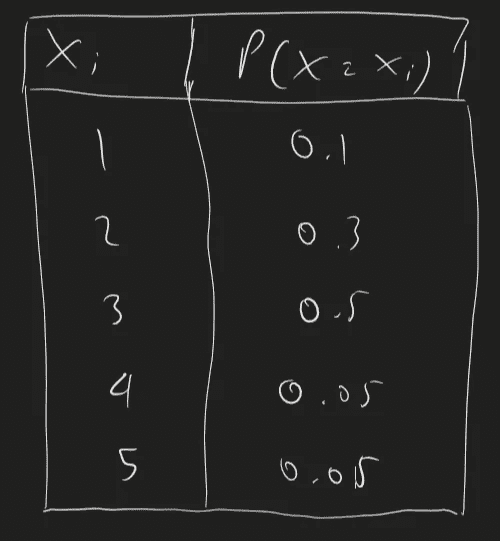 Xi P(X = xi)
1 0.1
2 0.3
3 0.5
4 0.05
5 0.05